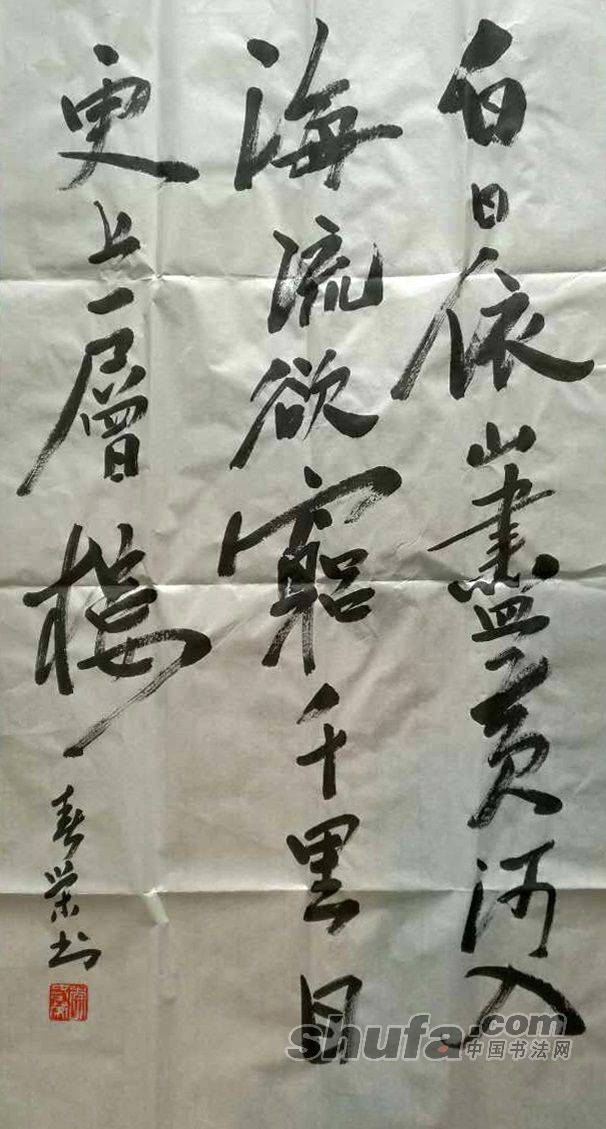 白日依山盡黄河入
海流欲窮千里目
更上一層樓
春荣书
shufa.com
中国书法网